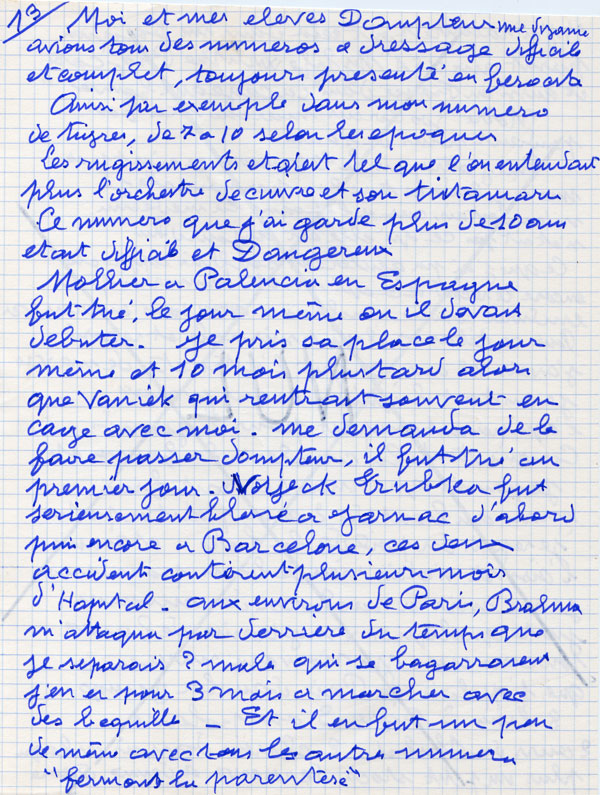 13 Moi et mes eleves Dompteur
avions tous des numeros a dressage difficile
et complet, toujours presenté en ferocité
Ainsi par exemple dans mon numero
de tigres, de 7 a 10 selon les epoques
Les rugissements etaient tel que l'on entendait
plus l'orchestre de cuivre et son tintamare
Ce numero que j'ai garde plus de 10 ans
etait difficile et Dangereux
Mollier a Palencia en Espagne
fut tué, le jour même ou il devait
debuter. Je pris sa place le jour
même et 10 mois plus tard alors
que Vaniek qui rentrait souvent en
cage avec moi. me demanda de le
faire passer dompteur, il fut tué au
premier jour. Wojeck Trubka fut
serieusement blessé a Jarnac d'abord
puis encore a Barcelone, ces deux
accident contèrent plusieurs mois
d'Hopital. aux environs de Paris, Brahma
m'attaqua par derrière du temps que
je separais 2 male qui se bagarraient
j'en ai pour 3 mois a marcher avec
des bequille – Et il en fut un peu
de même avec tous les autres numero
"fermons la parentèse"